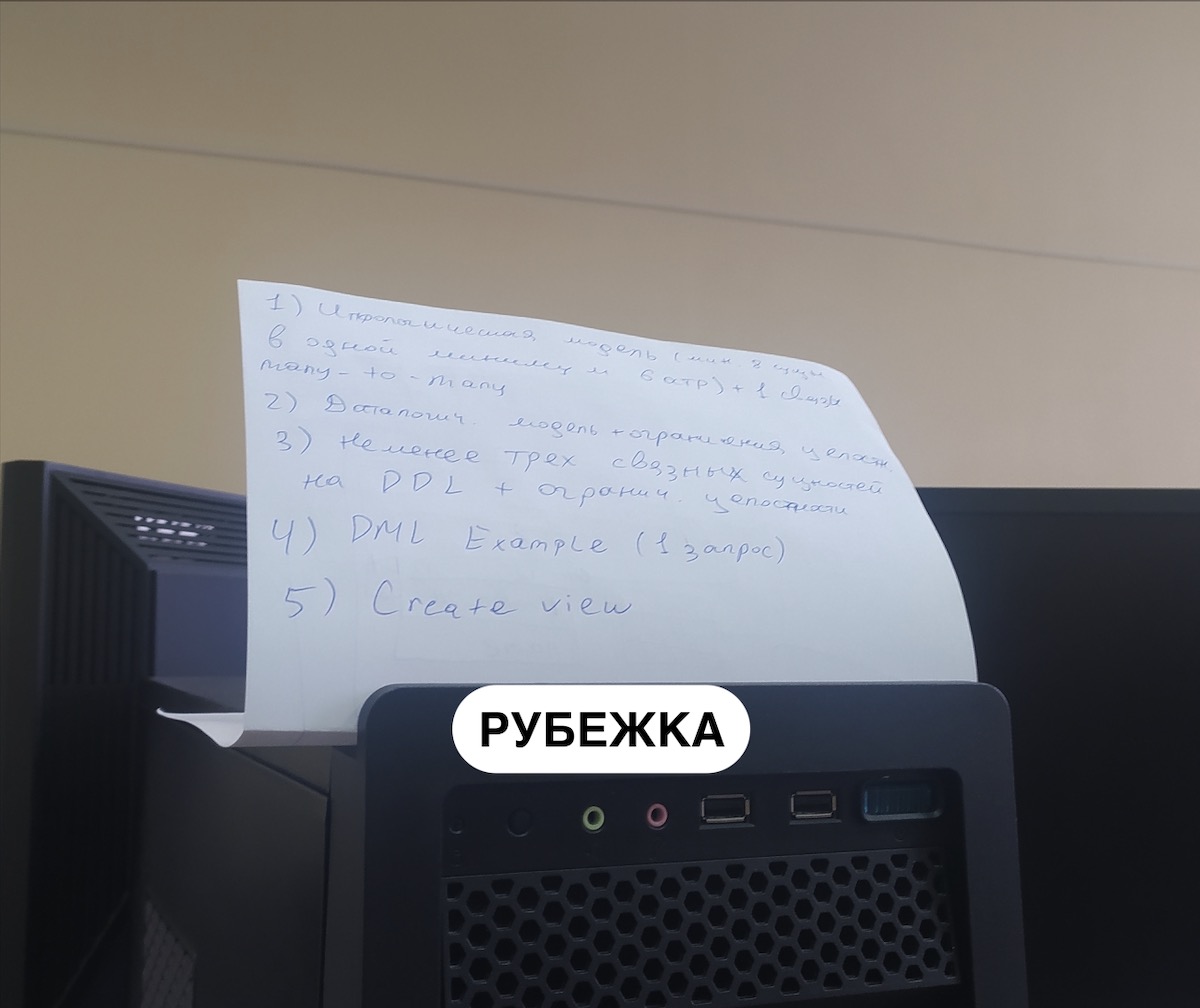 1) Инфологическая модель (мин. 8 сущн
в одной минимум 6 атр) + 1 связь
many-to-many
2) Даталогич. модель + ограничения целостн.
3) Не менее трех связных сущностей
на DDL + огранич. целостности
4) DML Example (1 запрос)
5) Create view
РУБЕЖКА